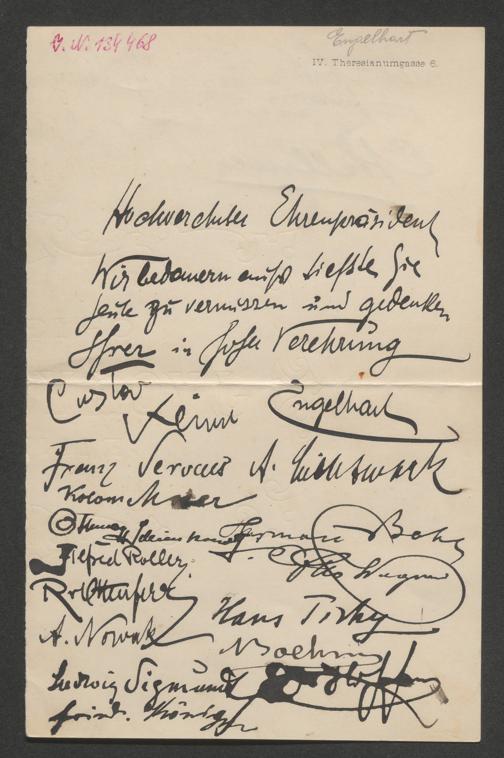 J. N. 134468
Engelhart
IV. Theresianumgasse 6.
Hochverehrter Ehrenpräsident
Wir bedauern aufs tiefste Sie
heute zu vermissen und gedenken
Ihrer in hoher Verehrung
Gustav Klimt Engelhart
Franz Servaes A. Lichtwark
Kolom Moser
Hermann Bahr
Alfred Roller
Otto Wagner
Rob Öttenfeld
Hans Tichy
A. Nowak
Boehm
Ludwig Sigmundt
Friedr. König